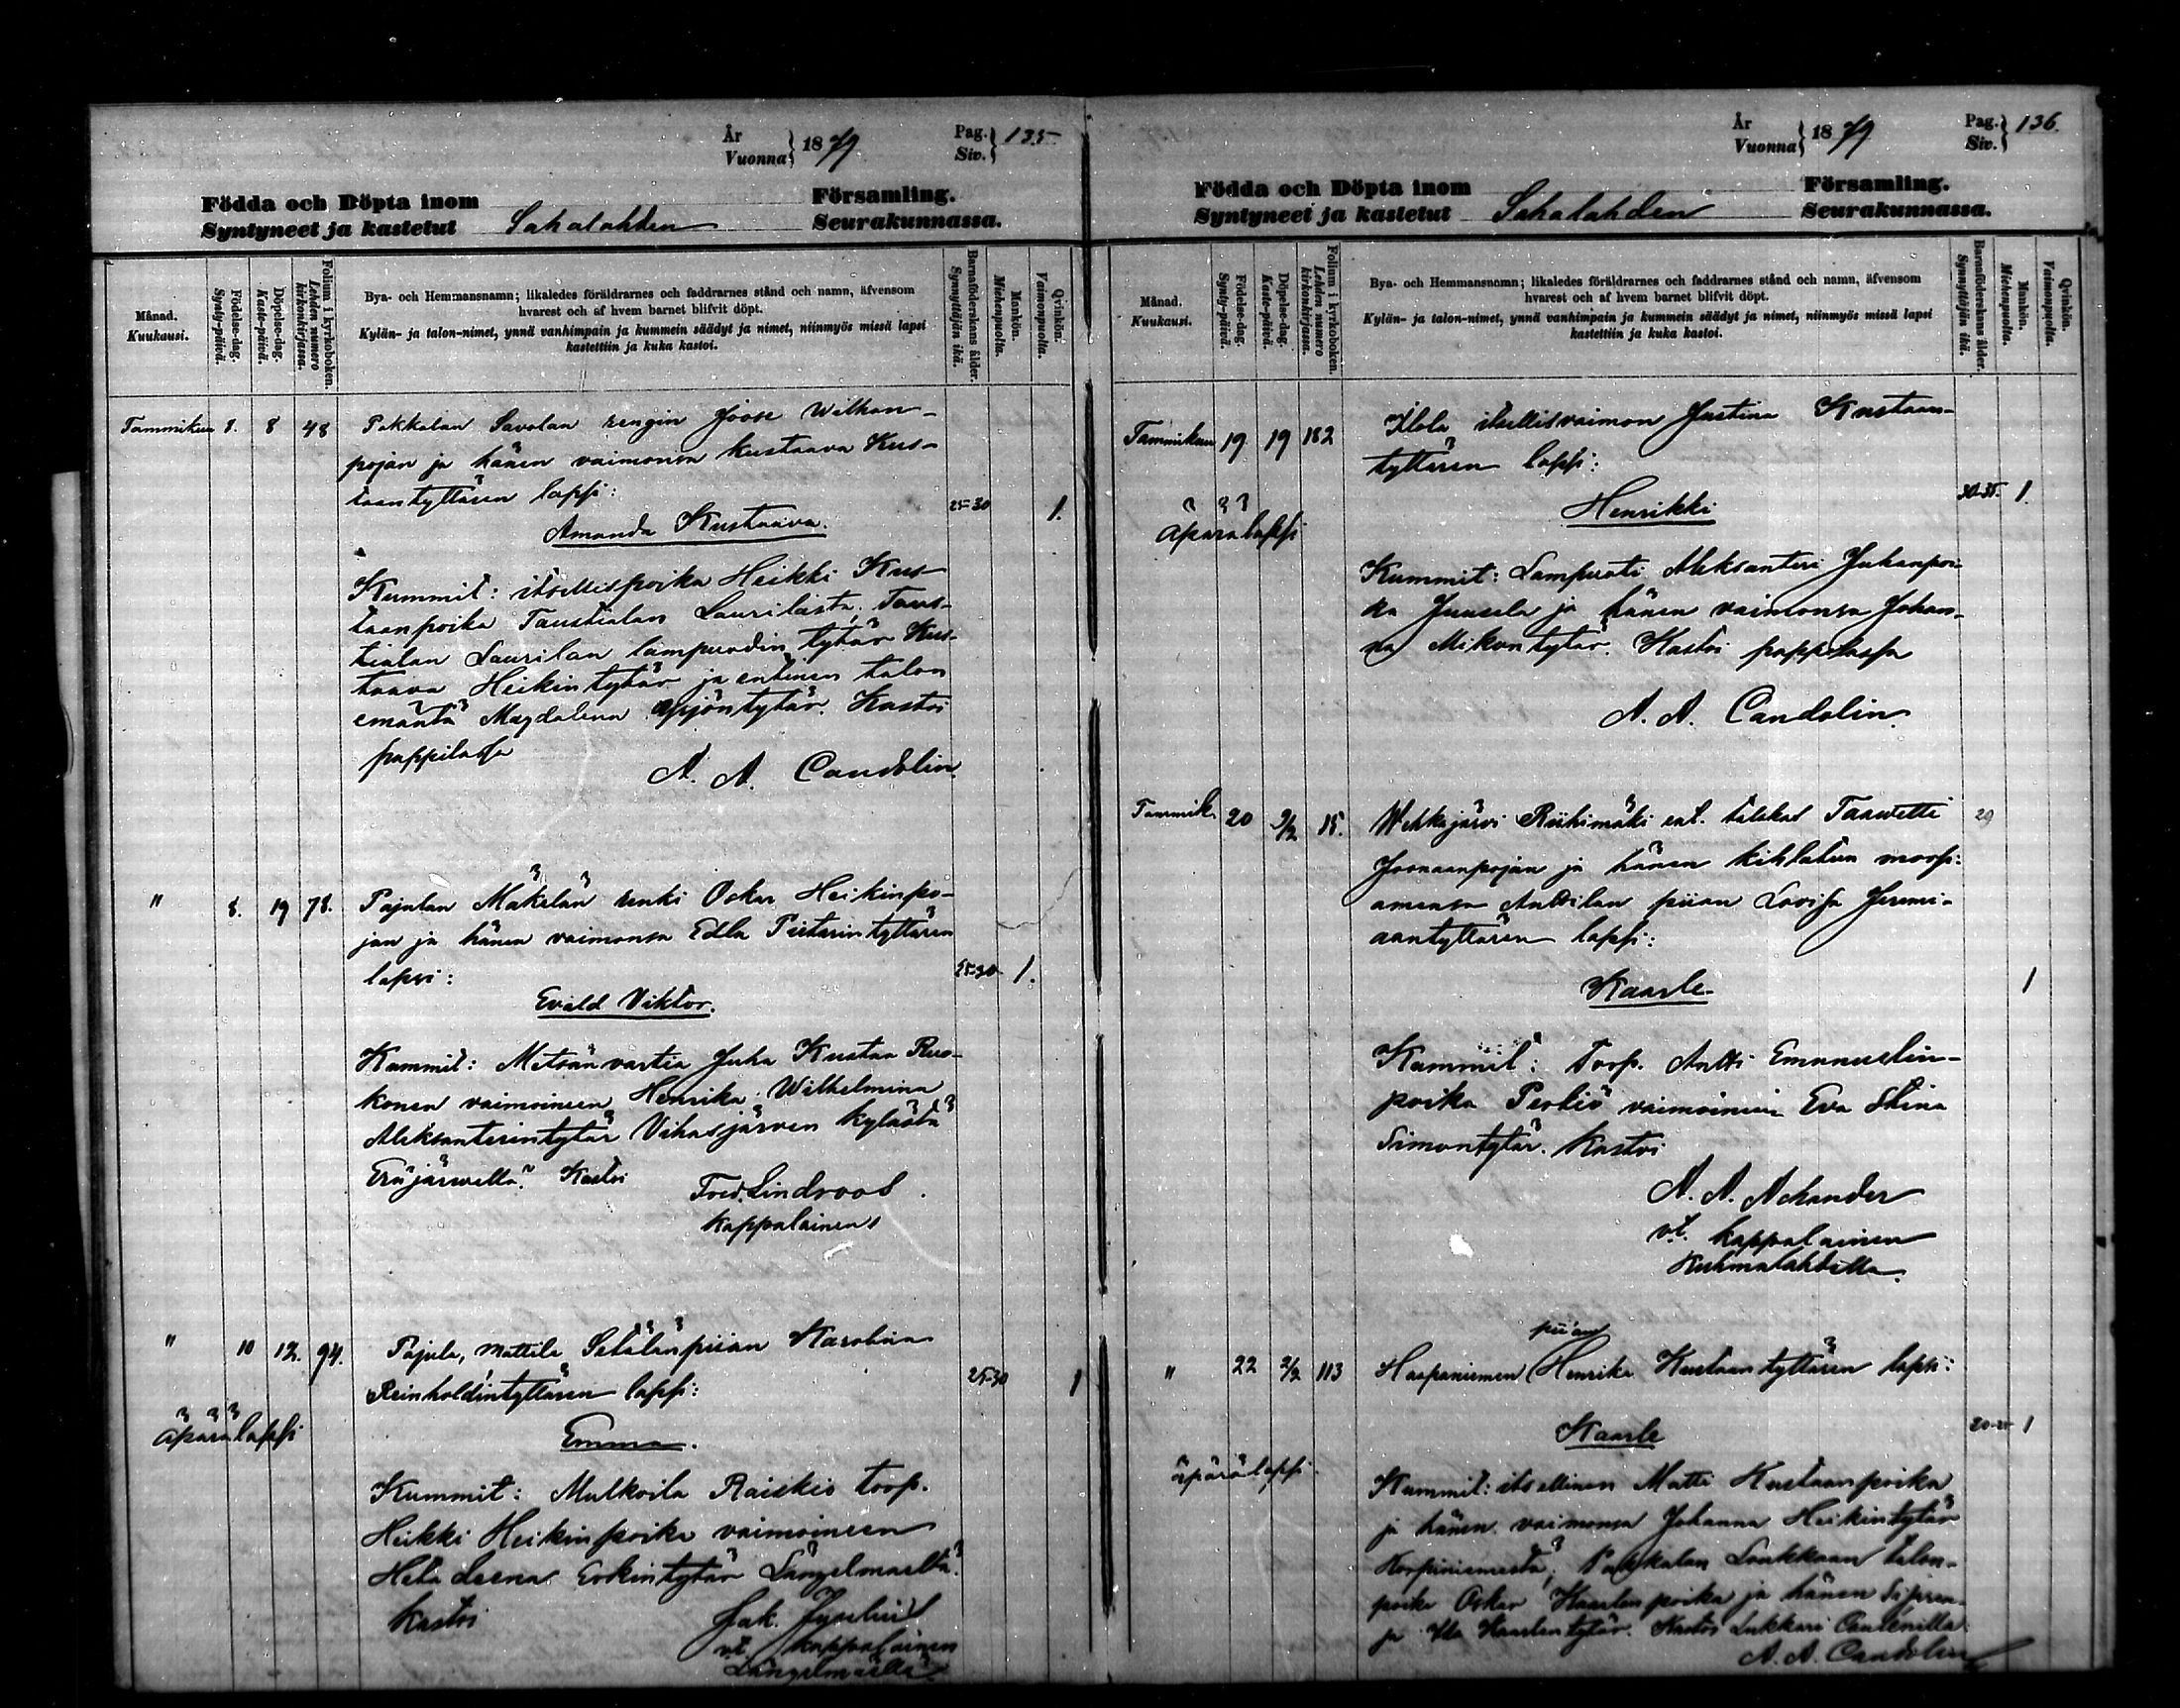 År
Vuonna } 1879
Pag.
Siv. } 135
Födda och Döpta inom Församling.
Syntyneet ja kastetut Sahalahden Seurakunnassa.
Månad.
Kuukausi.
Födelse-dag.
Synty-päivä.
Döpelse-dag.
Kaste-päivä.
Folium i kyrkoboken.
Lehden numero
kirkonkirjassa.
Bya- och Hemmansnamn; likaledes föräldrarnes och faddrarnes stånd och namn, äfvensom
hvarest och af hvem barnet blifvit döpt.
Kylän- ja talon-nimet, ynnä vanhimpain ja kummein säädyt ja nimet, niinmyös missä lapsi
kastettiin ja kuka kastoi.
Barnaföderskans ålder.
Synnyttäjän ikä.
Mankön.
Miehenpuolta.
Qvinkön.
Vaimonpuolta.
Tammikuu 8. 8 48 Pakkalan Savolan rengin Joose Wilhon-
pojan ja hänen vaimonsa Kustaava Kus-
taantyttären lapsi: 25-30 1.
Amanda Kustaava.
Kummit: itsellispoika Heikki Kus-
taanpoika Taustialan Laurilasta, Taus-
tialan Laurilan lampuodin tytär Kus-
taava Heikintytär ja entinen talon
emäntä Magdalena Yrjöntytär. Kastoi
pappilassa
A. A. Candolin
" 8. 19 78. Pajulan Mäkelän renki Oskar Heikinpo-
jan ja hänen vaimonsa Edla Pietarintyttären
lapsi: 25-30 1.
Evald Viktor.
Kummit: Metsänvartia Juha Kustaa Ruo-
konen vaimoineen Henrika Wilhelmina
Aleksanterintytär Vihasjärven kylästä
Eräjärvellä. Kastoi
Fred. Lindroos.
kappalainen
" 10 12. 94. Pajula, Mattila Setälän piian Karolina
Reinholdintyttären lapsi: 25-30 1
äpärälapsi
Emma.
Kummit: Mulkoila Raiskio torp.
Heikki Heikinpoika vaimoineen
Heta Leena Erkintytär Längelmäeltä.
Kastoi
Jak.
vt. kappalainen
Längelmäellä
År
Vuonna } 1879
Pag.
Siv. } 136.
Födda och Döpta inom Församling.
Syntyneet ja kastetut Sahalahden Seurakunnassa.
Månad.
Kuukausi.
Födelse-dag.
Synty-päivä.
Döpelse-dag.
Kaste-päivä.
Folium i kyrkoboken.
Lehden numero
kirkonkirjassa.
Bya- och Hemmansnamn; likaledes föräldrarnes och faddrarnes stånd och namn, äfvensom
hvarest och af hvem barnet blifvit döpt.
Kylän- ja talon-nimet, ynnä vanhimpain ja kummein säädyt ja nimet, niinmyös missä lapsi
kastettiin ja kuka kastoi.
Barnaföderskans ålder.
Synnyttäjän ikä.
Mankön.
Miehenpuolta.
Qvinkön.
Vaimonpuolta.
Tammikuu 19 19 182 Ilola itsellisvaimon Justina Kustaan-
tyttären lapsi:
äpärälapsi
Henrikki 30-35. 1.
Kummit: Lampuoti Aleksanteri Juhanpoi-
ka Juusela ja hänen vaimonsa Johan-
na Mikontytär. Kastoi pappilassa
A. A. Candolin
Tammik. 20 2/2 15. Wehkajärvi Riihimäki ent. Taawetti 29
Joonaanpojan ja hänen kihlatun morsi-
amensa Anttilan piian Lovisa Jeremi-
aantyttären lapsi:
Kaarle 1
Kummit: Torp. Antti Emanuelin-
poika Perkiö vaimoineen Eva Stina
Simontytär. Kastoi
A. A. Achander
vt. kappalainen
Kuhmalahdella.
piian
" 22 2/2 113 Haapaniemen Henrika Kustaantyttären lapsi:
Kaarle 20-25 1
äpärälapsi.
Kummit: itsellinen Matti Kustaanpoika
ja hänen vaimonsa Johanna Heikintytär
Korpiniemestä; Pakkalan Loukkaan talon-
poika Oskar Kaarlenpoika ja hänen
ja Ida Kaarlentytär. Kastoi Lukkari
A. A. Candolin